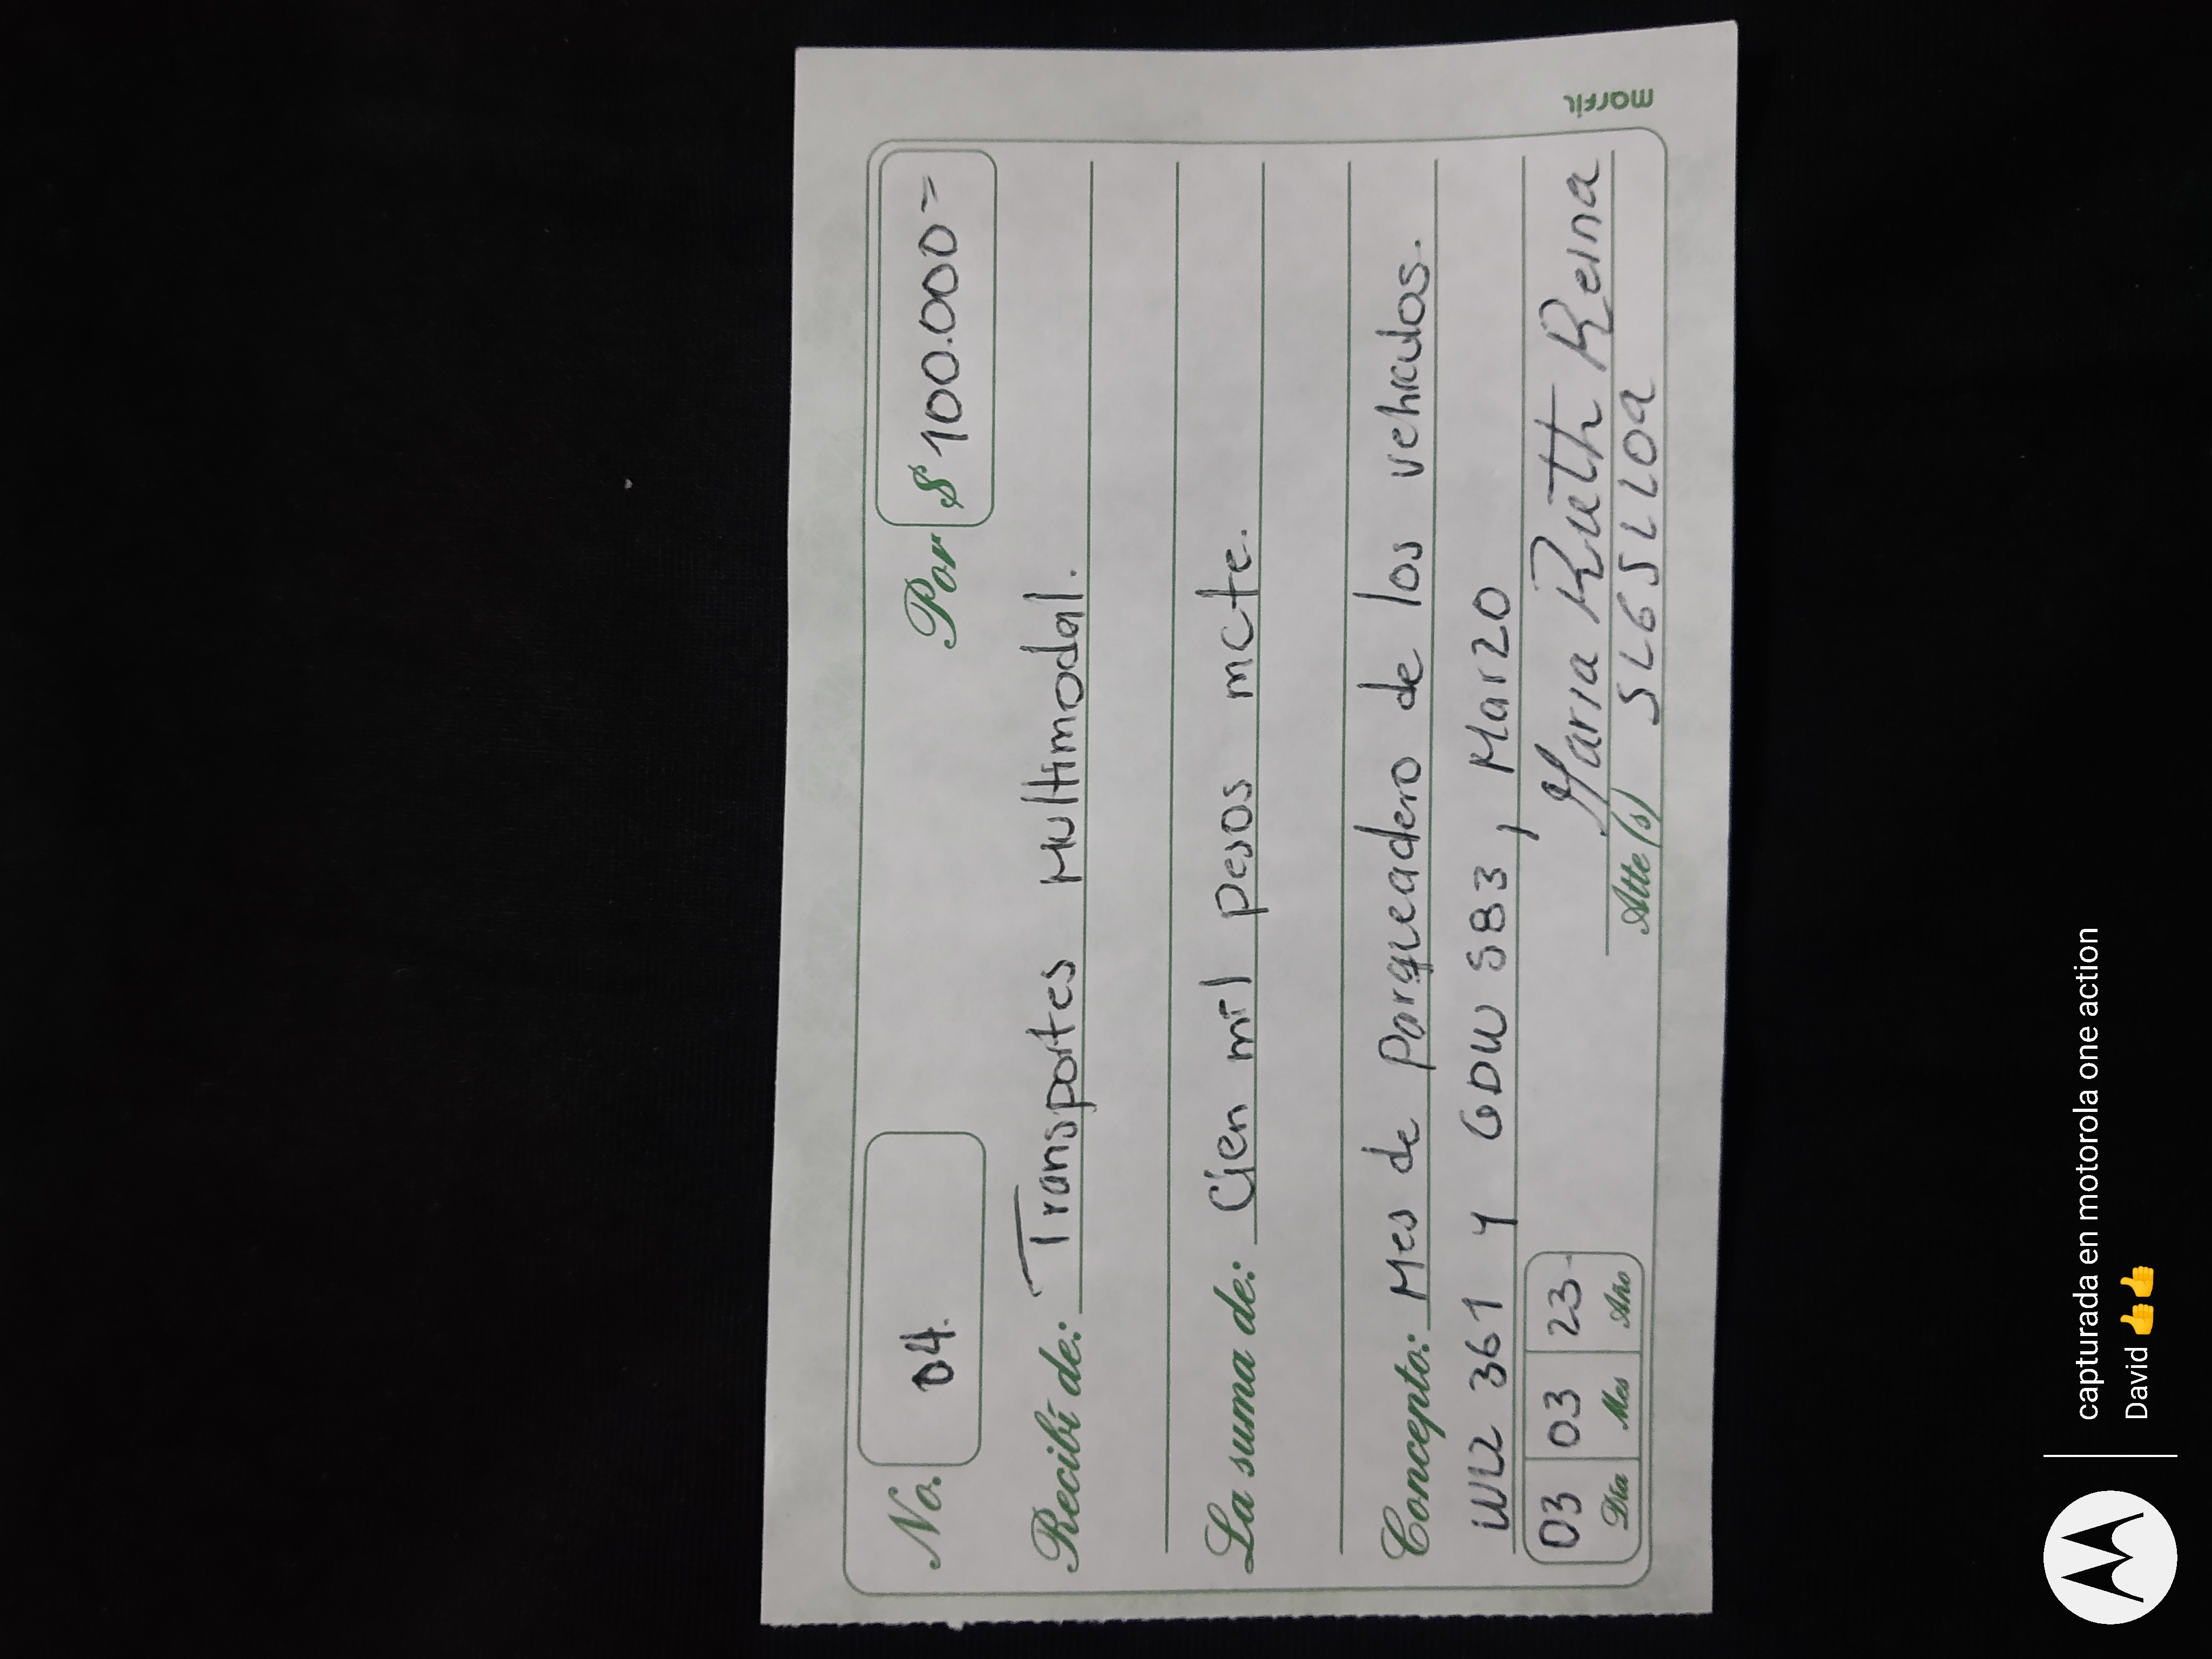 No. 04. Por $ 100.000=
Recibí de: Transportes Multimodal.
La suma de: Cien mil pesos mcte.
Concepto: Mes de Parqueadero de los vehiculos.
WLZ 361 y GDW 583, Marzo
03 03 23
Día Mes Año
Maria Ruth Reina
Atte(s)
marfil
capturada en motorola one action
David 👍👍